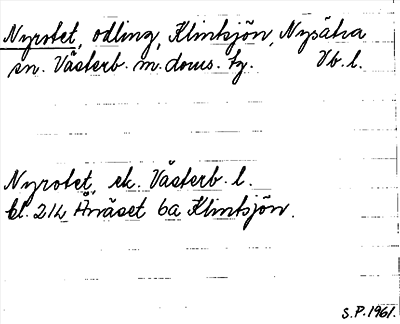 Nyrotet, odling, Klintsjön, Nysätra
sn. Västerb. m. doms. tg. Vb. l.
Nyrotet, ek. Västerb. l.
bl. 21L Ånäset 6a Klintsjön.
S.P. 1961.